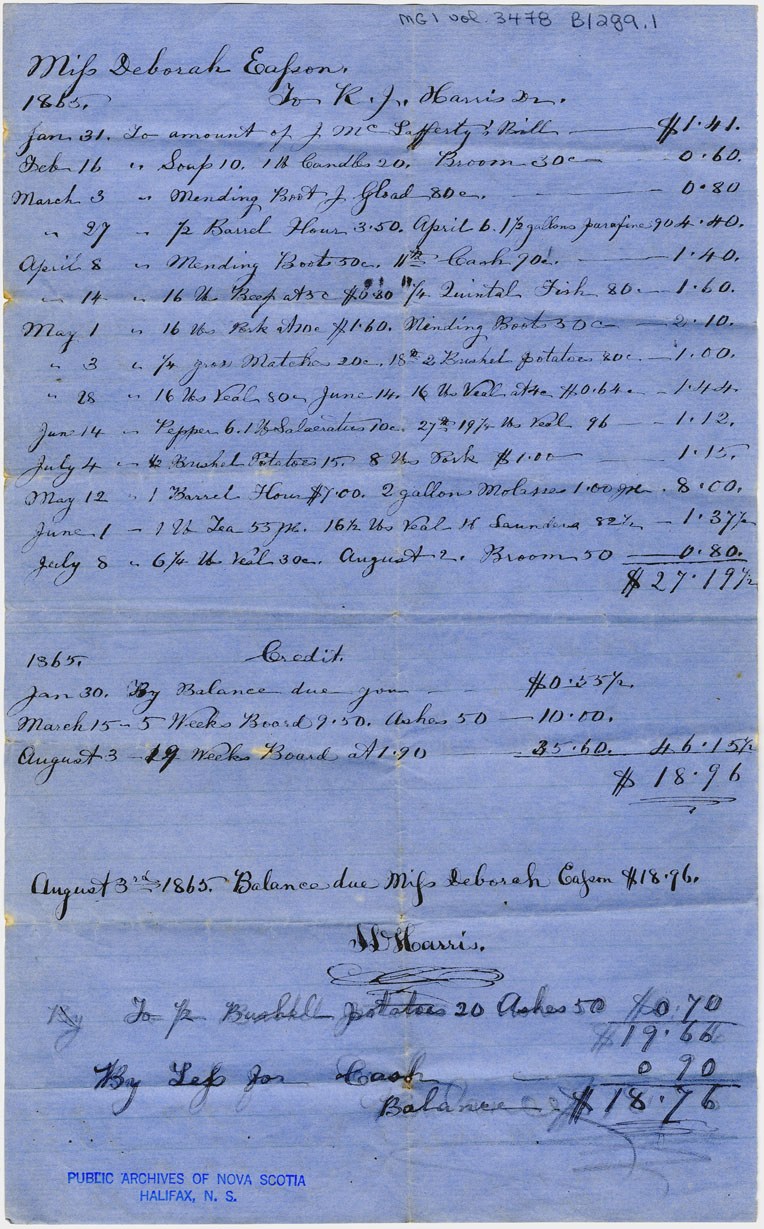 MG1 vol. 3478 B1289.1
Miss Deborah Eason.
1865. To R. J. Harris Dr.
Jan 31. To amount of J Mc Lafferty's Bill $1.41.
Feb 16 " Soup 10. 1 lb Candles 20. Broom 30c 0.60.
March 3 " Mending Boot J Gload 80c. 0.80
" 27 " 1/2 Barrel Flour 3.50. April 6. 1 1/2 gallons parafine 90 4.40.
April 8 " Mending Boots 50c. 11th Cash 90c. 1.40.
" 14 " 16 lbs Beef at 5c $0.80 1/4 Quintal Fish 80c 1.60.
May 1 " 16 lbs Pork at 10c $1.60. Mending Boots 50c 2.10.
" 3 " 1/4 gross Matches 20c. 18th 2 Brushel potatoes 80c 1.00.
" 28 " 16 lbs Veal 80c June 14. 16 lbs Veal at 4c $0.64c 1.44.
June 14 " Pepper 6. 1 lb Salaeratus 10c. 27th 19 1/2 lbs Veal 96 1.12.
July 4 " 1/2 Brushel Potatoes 15. 8 lbs Pork $1.00 1.15.
May 12 " 1 Barrel Flour $7.00. 2 gallons Molasses 1.00 8.00.
June 1 1 lb Tea 55 16 1/2 lbs Veal Saunders 82 1/2 1.37 1/2
July 8 " 6 1/4 lbs Veal 30c. August 2. Broom 50 0.80.
$27.19 1/2
1865. Credit.
Jan 30. By Balance due you $0.55 1/2.
March 15 5 Weeks Board 9.50. Ashes 50 10.00.
August 3 19 Weeks Board at 1.90 35.60. 46.15 1/2
$18.96
August 3rd 1865. Balance due Miss Deborah Eason $18.96.
Harris.
By To 1/2 Bushell potatoes 20 Ashes 50 $0.70
$19.66
By Less for Cash 0 90
Balance $18.76
PUBLIC ARCHIVES OF NOVA SCOTIA
HALIFAX, N. S.